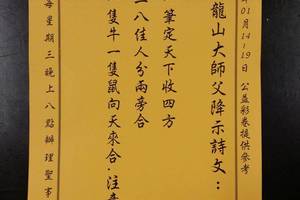 年01月14-19日 公益彩卷提供參考
龍山大師父降示詩文：
筆定天下收四方
二八佳人分兩旁合
隻牛一隻鼠向天來合．注意
每星期三晚上八點辦理聖事